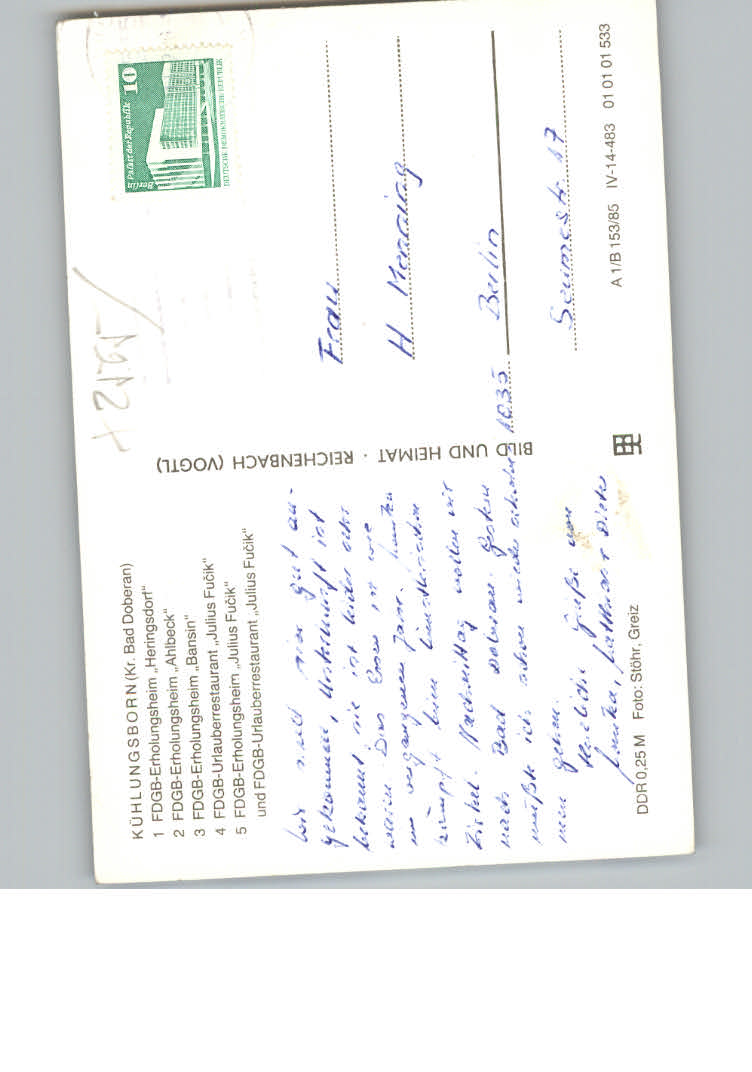 KÜHLUNGSBORN (Kr. Bad Doberan)
1 FDGB-Erholungsheim „Heringsdorf“
2 FDGB-Erholungsheim „Ahlbeck“
3 FDGB-Erholungsheim „Bansin“
4 FDGB-Urlauberrestaurant „Julius Fučik“
5 FDGB-Erholungsheim „Julius Fučik“
und FDGB-Urlauberrestaurant „Julius Fučik“
Wir sind hier gut an-
gekommen, Unterkunft ist
bekannt nie ist leider sehr
klein. Das Essen ist wie
im vergangenen Jahr.
kämpft beim
Nachmittag wollen wir
nach Bad Doberan. Gestern
mußte ich schon wieder
gehen.
Herzliche Grüße von
DDR 0,25 M Foto: Stöhr, Greiz
BILD UND HEIMAT · REICHENBACH (VOGTL)
Berlin Palast der Republik
10
DEUTSCHE DEMOKRATISCHE REPUBLIK
Frau
H
1035 Berlin
Seumestr. 17
A 1/B 153/85 IV-14-483 01 01 01 533